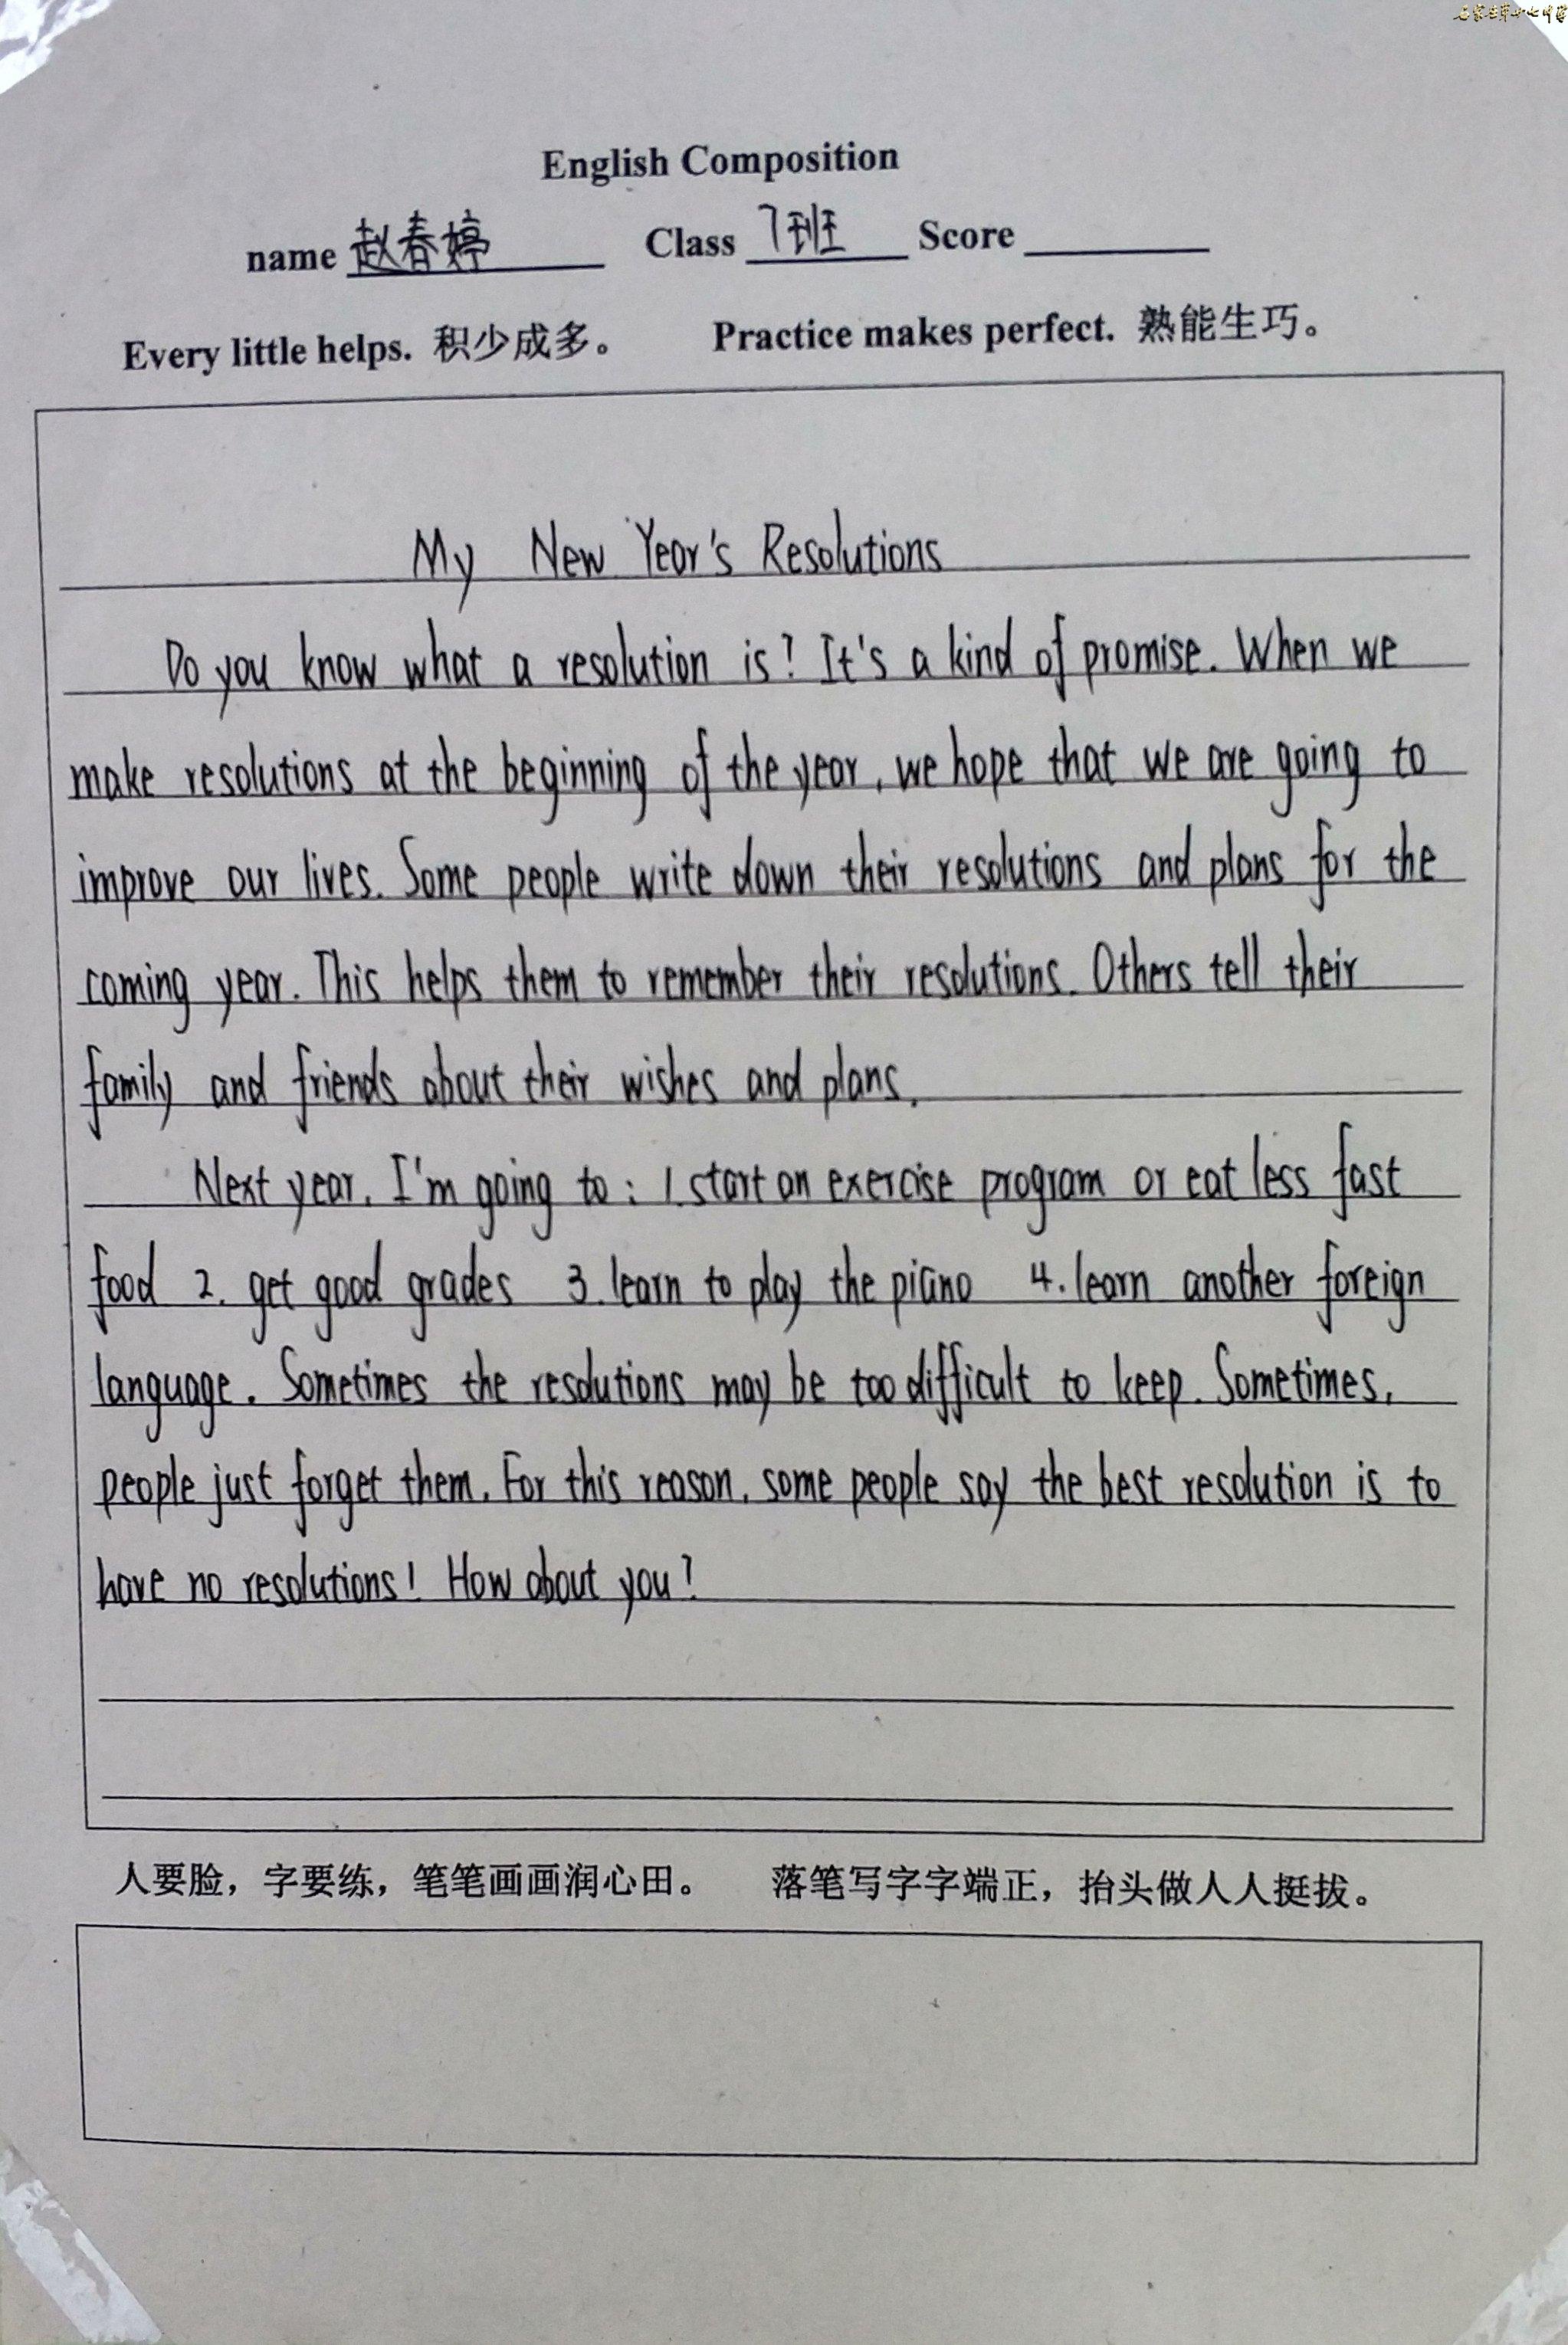 石家庄第十七中学
English Composition
name 赵春婷 Class 7班 Score
Every little helps. 积少成多。 Practice makes perfect. 熟能生巧。
My New Year's Resolutions
Do you know what a resolution is? It's a kind of promise. When we
make resolutions at the beginning of the year, we hope that we are going to
improve our lives. Some people write down their resolutions and plans for the
coming year. This helps them to remember their resolutions. Others tell their
family and friends about their wishes and plans.
Next year, I'm going to: 1. start an exercise program or eat less fast
food 2. get good grades 3. learn to play the piano 4. learn another foreign
language. Sometimes the resolutions may be too difficult to keep. Sometimes,
people just forget them. For this reason, some people say the best resolution is to
have no resolutions! How about you?
人要脸，字要练，笔笔画画润心田。 落笔写字字端正，抬头做人人挺拔。